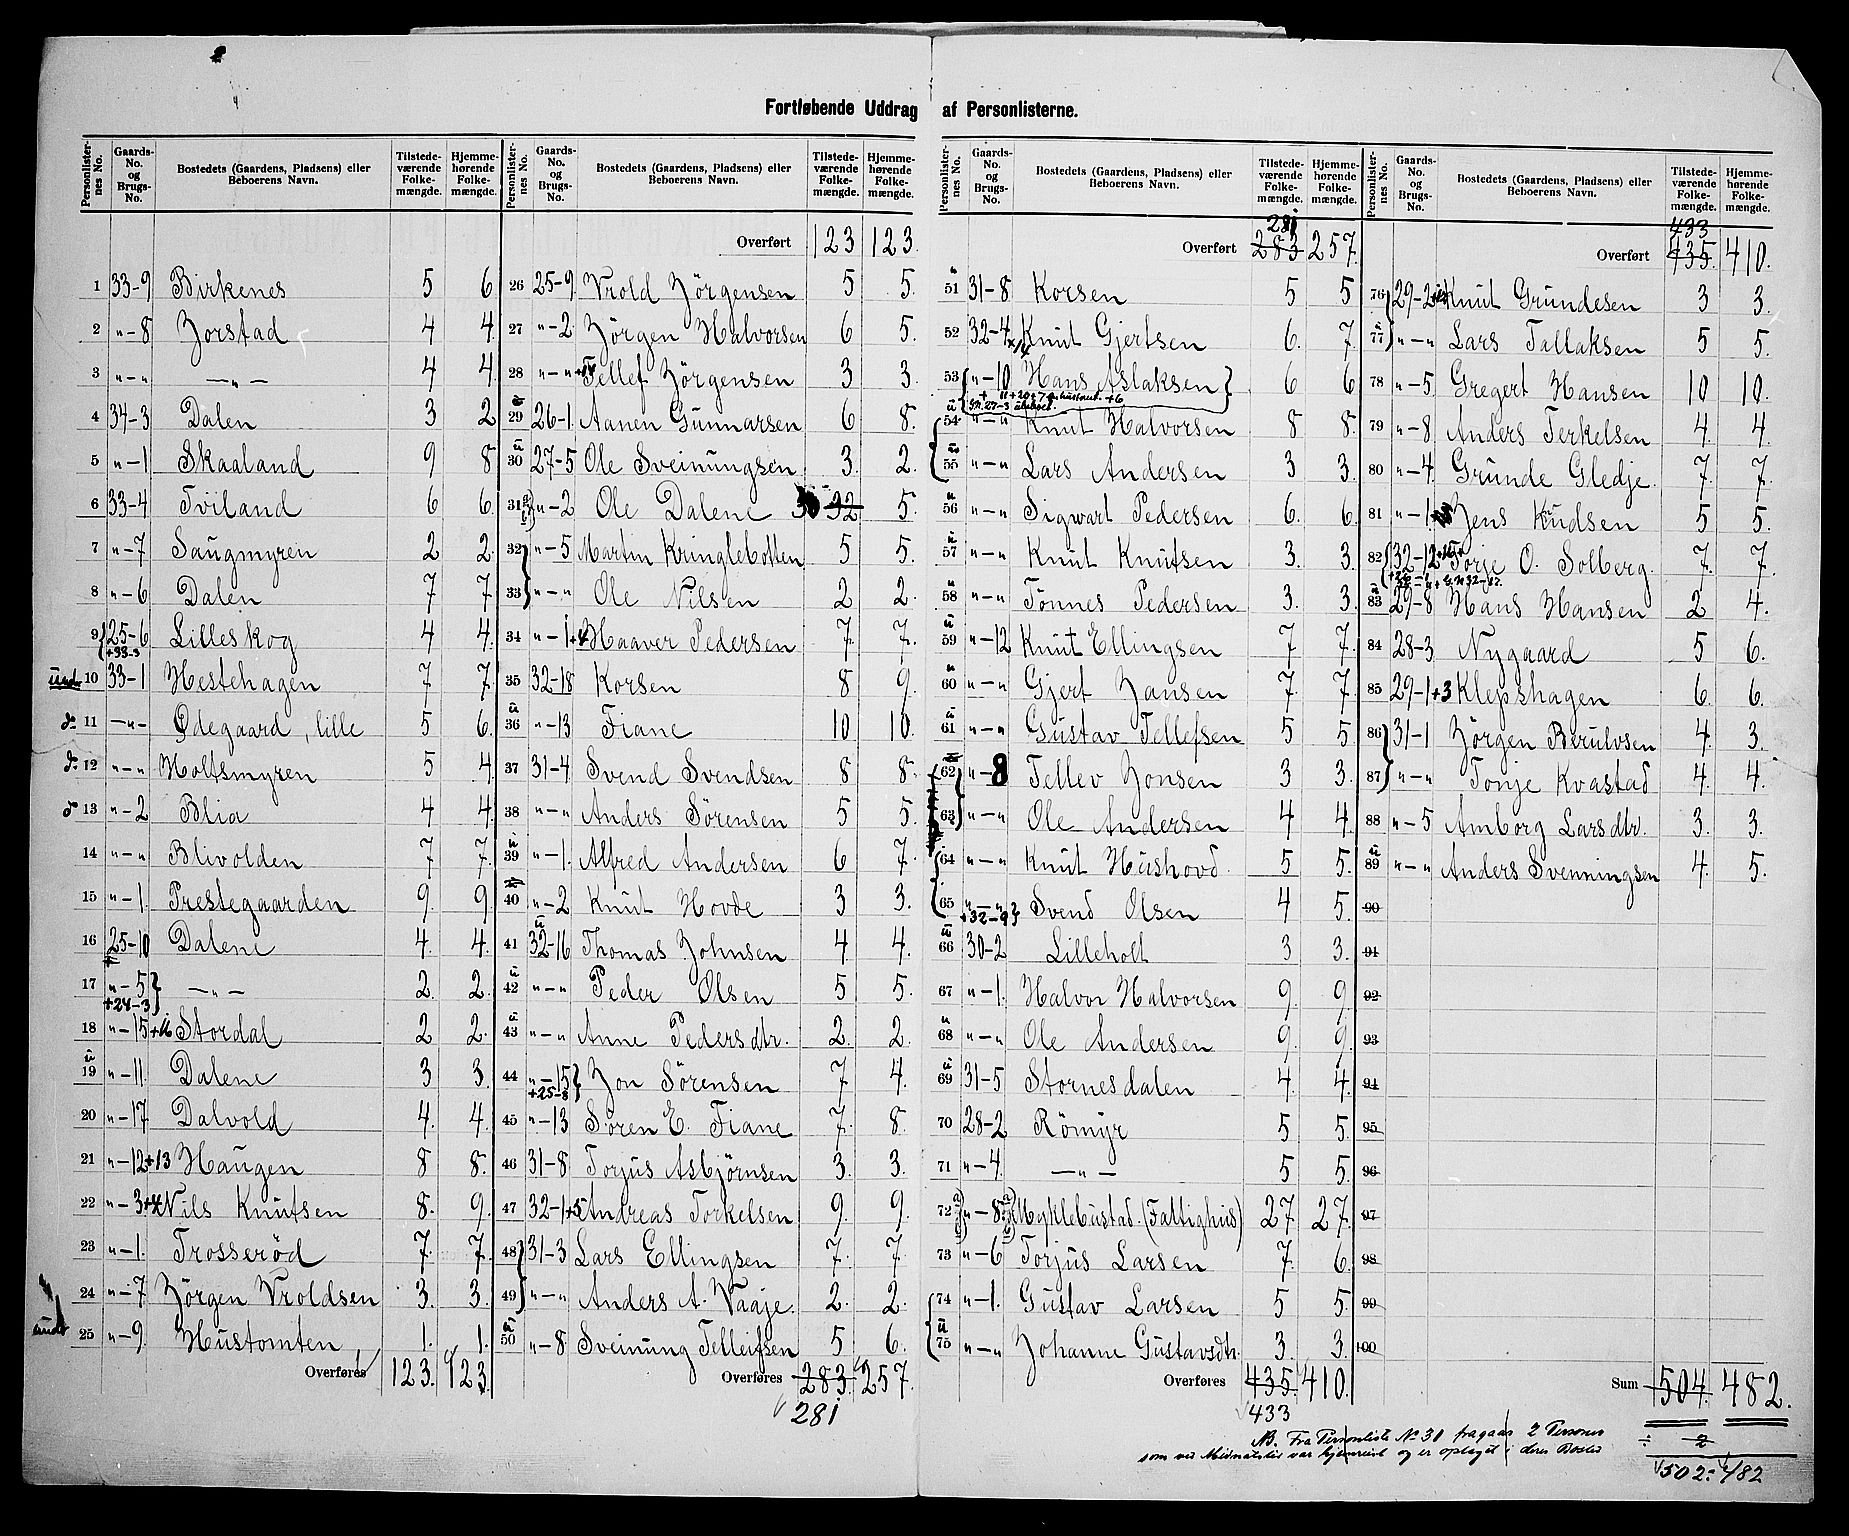 Fortløbende Uddrag af Personlisterne.
Personlister-nes No. Gaards-No. og Brugs-No. Bostedets (Gaardens, Pladsens) eller Beboerens Navn. Tilstede-værende Folke-mængde. Hjemme-hørende Folke-mængde.
1 33-9 Birkenes 5 6
2 "-8 Jorstad 4 4.
3 "-" -"- 4 4.
4 34-3 Dalen 3 2
5 "-1 Skaaland 9 8
6 33-4 Tviland 6 6.
7 "-7 Saugmyren 2 2.
8 "-6 Dalen 7 7
9 25-6 Lilleskog 4 4.
+33-3
und. 10 33-1 Hestehagen 7 7
do. 11 -"- Ødegaard, lille 5 6
do. 12 "-" Holtsmyren 5 4
do 13 "-2 Blia 4 4.
14 "-" Blivolden 7 7.
15 "-1. Prestegaarden 9. 9
16 25-10 Dalene 4. 4.
17 "-5 -"- 2. 2.
+24-3
18 "-15+16 Stordal 2 2.
ü
19 "-11. Dalene 3 3.
20 "-17 Dalvold 4. 4.
21 "-12+13 Haugen 8 8.
22 "-3+4 Nils Knutsen 8. 9.
23 "-1. Trosserød 7. 7.
24 "-7 Jörgen Vroldsen 3. 3.
undt 25 "-9. Hustomten 1. 1.
Overføres 123. 123.
Personlister-nes No. Gaards-No. og Brugs-No. Bostedets (Gaardens, Pladsens) eller Beboerens Navn. Tilstede-værende Folke-mængde. Hjemme-hørende Folke-mængde.
Overført 123 123.
26 25-9 Vrold Jörgensen 5 5.
27 "-2. Jörgen Halvorsen 6 5.
28 "-" Tellef Jörgensen 3 3.
29 26-1. Aanen Gunnarsen 6 8.
ü
30 27-5 Ole Sveinungsen 3. 2.
31 "-2 Ole Dalene 30 32 5.
32 "-5 Martin Kringlebotten 5 5.
33 "-" Ole Nilsen 2 2.
34 "-1+4 Haaver Pedersen 7. 7.
35 32-18 Korsen 8 9.
ü
36 "-13 Fiane 10 10.
37 31-4 Svend Svendsen 8 8.
38 "-" Anders Sörensen 5 5.
ü
39 "-1. Alfred Andersen 6 7.
40 "-2 Knut Hovde 3 3.
ü
41 32-16 Thomas Johnsen 4 4.
ü
42 "-" Peder Olsen 5 5.
ü
43 "-" Anne Pedersdtr. 2. 2.
44 "-15 Jon Sörensen 7 4.
+25-8
45 "-13 Sören E. Fiane 7. 8.
46 31-8 Torjus Asbjörnsen 3. 3.
47 32-1+5 Andreas Torkelsen 9. 9.
48 31-3 Lars Ellingsen 7. 7.
49 "-" Anders A. Vaaje. 2. 2.
ü
50 "-8 Sveinung Telleifsen 5 6.
Overføres 283. 257.
281
Personlister-nes No. Gaards-No. og Brugs-No. Bostedets (Gaardens, Pladsens) eller Beboerens Navn. Tilstede-værende Folke-mængde. Hjemme-hørende Folke-mængde.
281
Overført 283 257.
ü
51 31-8 Korsen 5 5
52 32-4 Knut Gjertsen 6. 7.
53 "-10 Hans Aslaksen 6 6
ü
54 "-" Knut Halvorsen 8 8.
ü
55 "-" Lars Andersen 3 3.
ü
56 "-" Sigwart Pedersen 6. 6.
ü
57 "-" Knut Knutsen 3. 3.
ü
58 "-" Tönnes Pedersen 3. 3.
ü
59 "-12 Knut Ellingsen 7 7.
ü
60 "-" Gjert Jansen 7 7.
ü
61 "-" Gustav Tellefsen 5 5
62 "-8 Tellev Jonsen 3 3.
63 "-" Ole Andersen 4 4.
64 "-" Knut Hushovd. 5 5.
65 "-" Svend Olsen 4 5.
+32-9
ü
66 30-2 Lilleholt 3 3.
67 "-1. Halvor Halvorsen 9. 9.
ü
68 "-" Ole Andersen 9. 9.
ü
69 31-5 Stornesdalen 4. 4.
70 28-2 Römyr 5 5.
71 "-4. -"- 5 5.
72 "-8 Myklebustad. (Fattighus) 27. 27.
73 "-6 Torjus Larsen 7. 6.
74 "-1. Gustav Larsen 5 5.
ü
75 "-" Johanne Gustavsdtr. 3. 3.
Overføres 435. 410.
433
Personlister-nes No. Gaards-No. og Brugs-No. Bostedets (Gaardens, Pladsens) eller Beboerens Navn. Tilstede-værende Folke-mængde. Hjemme-hørende Folke-mængde.
433
Overført 435. 410.
76 29-2 Knut Grundesen 3 3.
ü
77 "-" Lars Tallaksen 5 5.
78 "-5 Gregert Hansen 10 10.
79 "-8 Anders Terkelsen 4. 4.
80 "-4 Grunde Gledje. 7. 7.
81 "-1 Jens Kudsen 5 5.
82 32-12 Torje O. Solberg. 7. 7.
ü
83 29-8 Hans Hansen 2 4.
84 28-3 Nygaard 5 6.
85 29-1+3 Klepshagen 6. 6.
86 31-1 Jörgen Berulvsen 4. 3.
87 "-" Tonje Kvastad 4. 4.
88 "-5 Amborg Larsdtr. 3. 3.
ü
89 "-" Anders Svenningsen 4. 5.
90
91
92
93
94
95
96
97
98
99
100
Sum 504. 482.
NB. Fra Personliste No 31 fragaar 2 Personer
÷ 2
som ved Midnatstid var hjemreist og er optaget i deres Bosted
502. 482